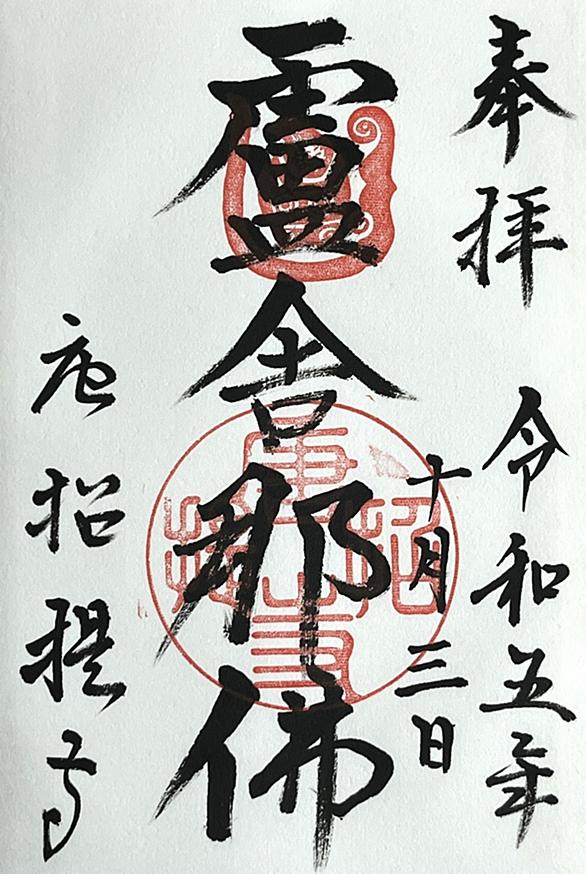 奉拝
令和五年
十月三日
盧舎那佛
唐招提寺